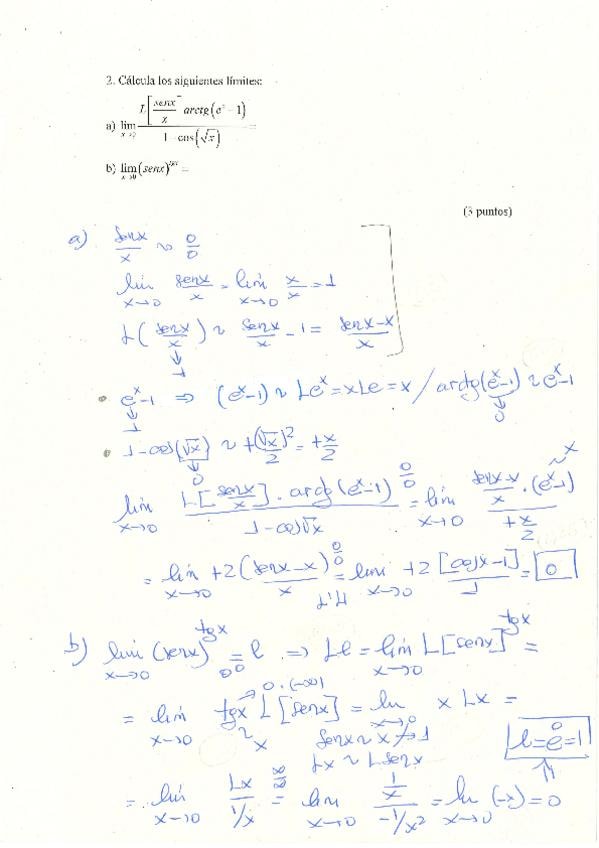 2. Cálcula los siguientes límites:
a) lim x→0 L[senx/x] arctg(e^x − 1) / 1 − cos(√x) =
b) lim x→0 (senx)^tgx =
(3 puntos)
a) senx/x ~ 0/0
lim x→0 senx/x = lim x→0 x/x = 1
L(senx/x) ~ senx/x − 1 = senx−x/x
↓ 1
• e^x−1 ⇒ (e^x−1) ~ Le^x = xLe = x / arctg(e^x−1) ~ e^x−1
↓ 1 ↓ 0
• 1−cos(√x) ~ +(√x)²/2 = +x/2
↓ 0
lim x→0 L[senx/x] · arctg(e^x−1) / 1−cos√x 0/0 = lim x→0 senx−x/x · (e^x−1) ~ x / +x/2
= lim x→0 +2(senx−x)/x 0/0 = L'H lim x→0 +2[cosx−1]/1 = 0
b) lim x→0 (senx)^tgx = 0^0 l ⇒ Ll = lim x→0 L[senx]^tgx =
= lim x→0 tgx L[senx] = lim x→0 x Lx =
0·(−∞)
~ x senx ~ x → 1
Lx ~ Lsenx
l = e^0 = 1
= lim x→0 Lx / 1/x ∞/∞ = lim x→0 1/x / −1/x² = lim x→0 (−x) = 0